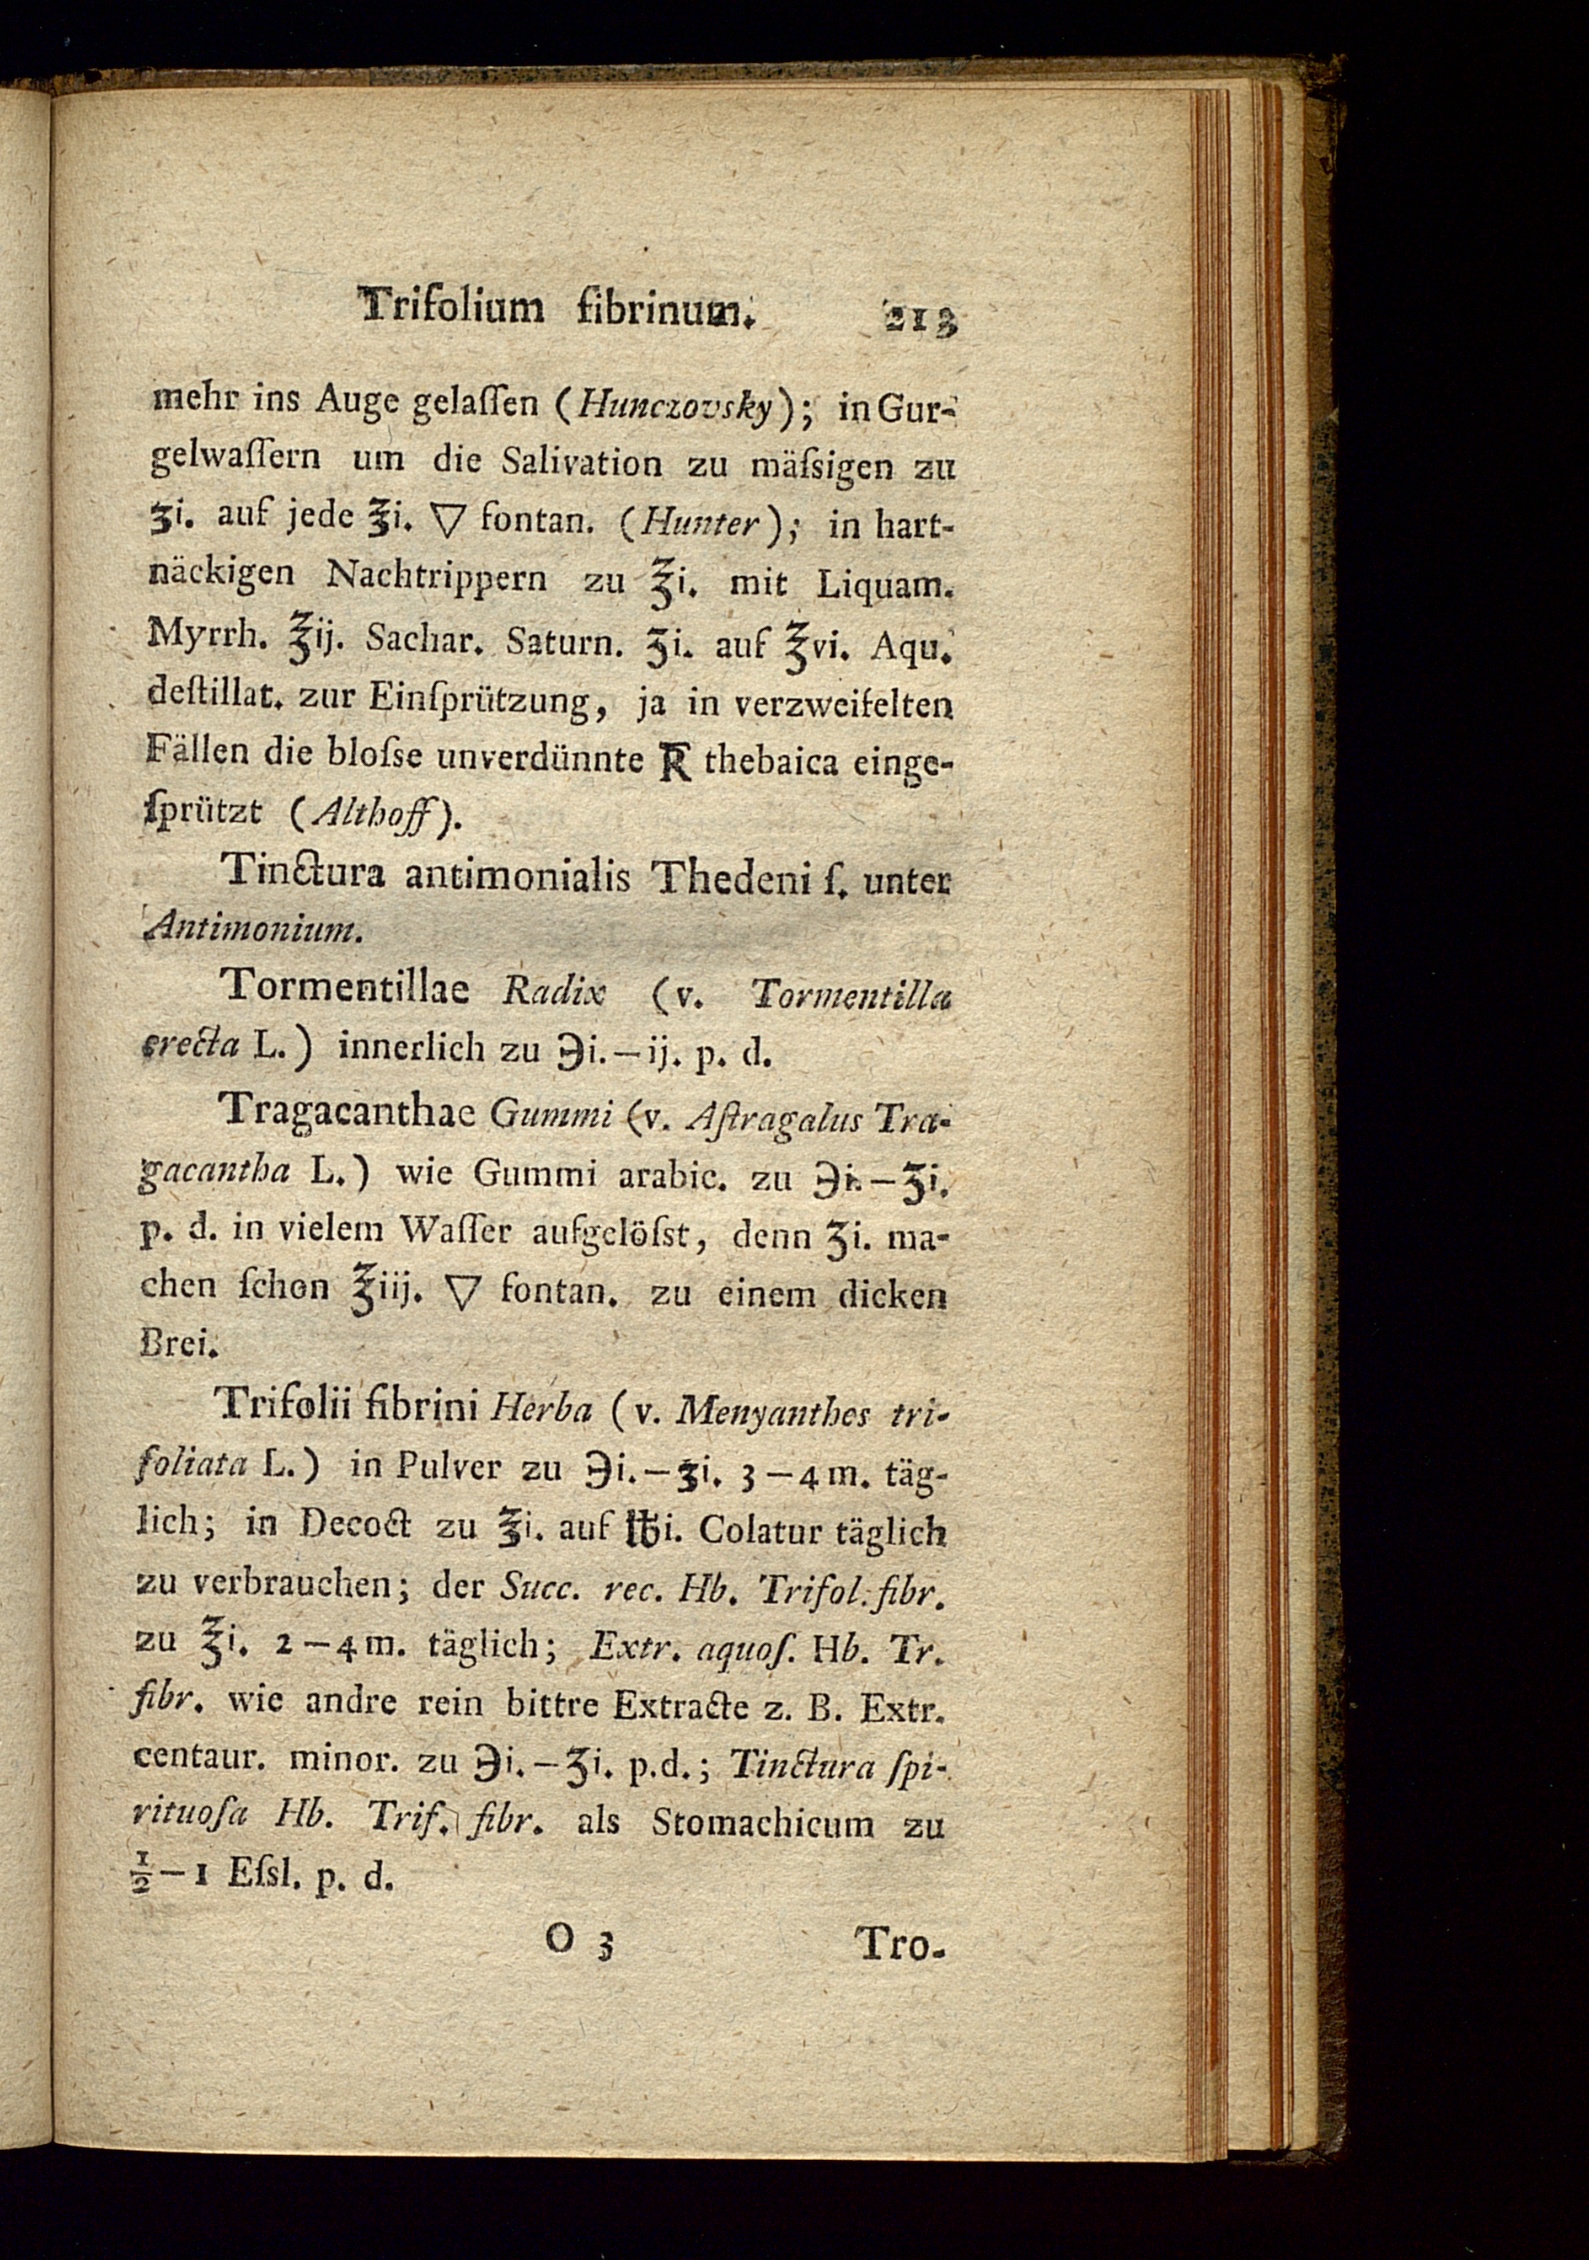 Trifolium fibrinum. 213
mehr ins Auge gelaſſen (Hunczovsky); in Gur-
gelwaſſern um die Salivation zu mäſsigen zu
ʒi. auf jede ℥i. ▽ fontan. (Hunter); in hart-
näckigen Nachtrippern zu ℥i. mit Liquam.
Myrrh. ℥ij. Sachar. Saturn. ʒi. auf ℥vi. Aqu.
deſtillat. zur Einſprützung, ja in verzweifelten
Fällen die bloſse unverdünnte R̅ thebaica einge-
ſprützt (Althoff).
Tinctura antimonialis Thedeni ſ. unter
Antimonium.
Tormentillae Radix (v. Tormentilla
erecta L.) innerlich zu ℈i.—ij. p. d.
Tragacanthae Gummi (v. Aſtragalus Tra-
gacantha L.) wie Gummi arabic. zu ℈i.—ʒi.
p. d. in vielem Waſſer aufgelöſst, denn ʒi. ma-
chen ſchon ℥iij. ▽ fontan. zu einem dicken
Brei.
Trifolii fibrini Herba (v. Menyanthes tri-
foliata L.) in Pulver zu ℈i.—ʒi. 3—4 m. täg-
lich; in Decoct zu ℥i. auf ℔i. Colatur täglich
zu verbrauchen; der Succ. rec. Hb. Trifol. fibr.
zu ℥i. 2—4 m. täglich; Extr. aquoſ. Hb. Tr.
fibr. wie andre rein bittre Extracte z. B. Extr.
centaur. minor. zu ℈i.—ʒi. p.d.; Tinctura ſpi-
rituoſa Hb. Trif. fibr. als Stomachicum zu
½—1 Eſsl. p. d.
O 3 Tro-